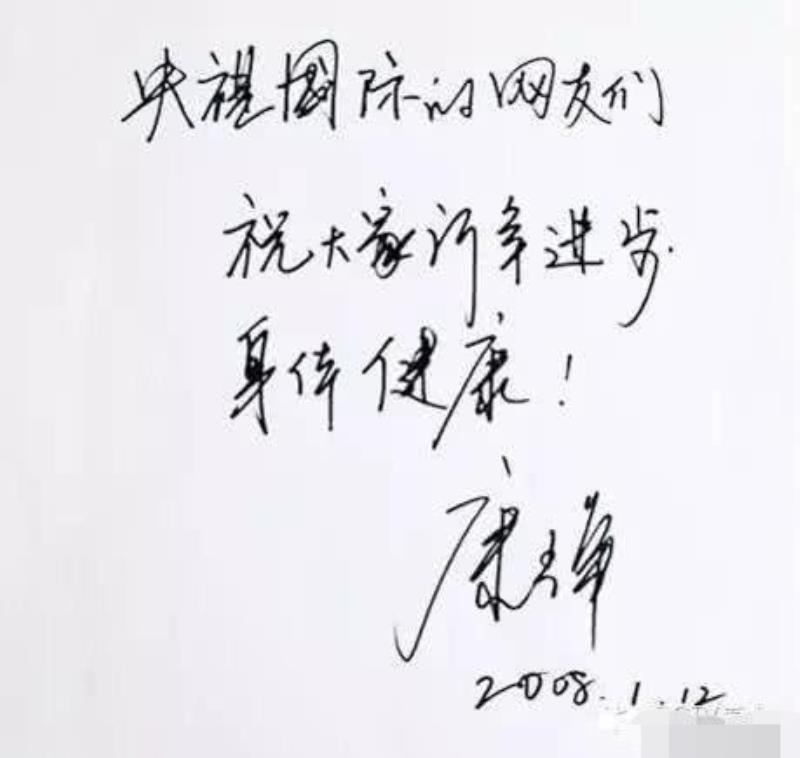 央视國际的网友们
祝大家新年进步
身体健康！
康辉
2008.1.12